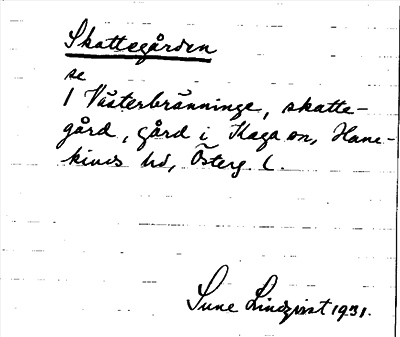 Skattegården
se
1 Västerbränninge, skatte-
gård, gård i Kaga sn, Hane-
kinds hd, Österg. l.
Sune Lindqvist 1931.